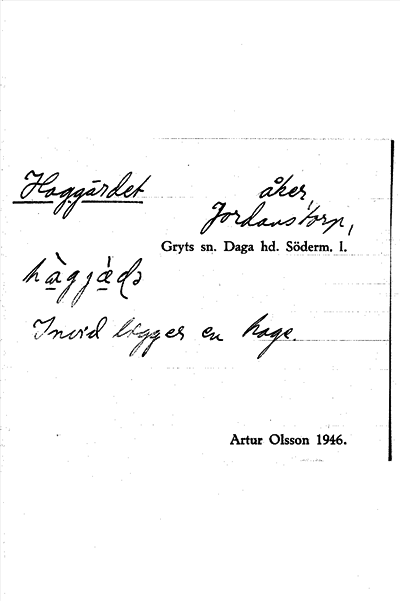 Haggärdet
åker,
Jordanstorp,
Gryts sn. Daga hd. Söderm. l.
hàgjàḍə
Invid ligger en hage.
Artur Olsson 1946.